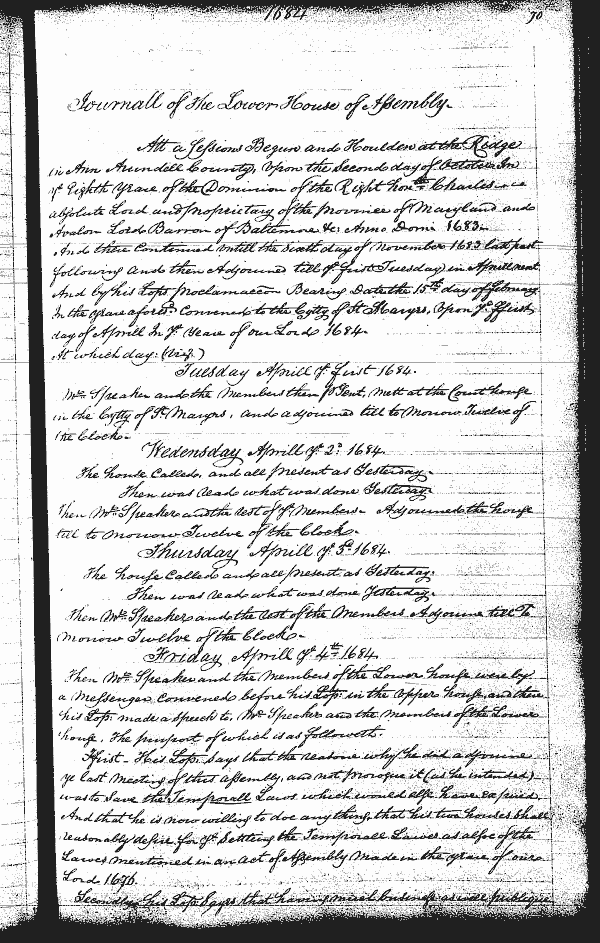 1684
70
Journall of the Lower House of Assembly.
Att a Sessions Begun and Houlden at the Ridge
in Ann Arundell County, Upon the Second day of October In
ye Eighth Yeare of the Dominion of the Right honble Charles
absolute Lord and Proprietary of the Province of Maryland and
Avalon Lord Barron of Baltimore &c Anno Domi 1683.
And there Continued untill the Sixth day of November 1683 last past
following And then Adjourned till ye first Tuesday in Aprill next
And by his Lopps Proclamacon Bearing Date the 15th day of February
In the yeare aforesd Convened to the Citty of St Maryes, Upon ye ffirst
day of Aprill In ye Yeare of our Lord 1684.
At which day: (Viz.)
Tuesday Aprill ye first 1684.
Mr Speaker and the Members then pSent, mett at the Court house
in the Citty of St Maryes, and adjourned till to Morrow Twelve of
the Clock.
Wedensday Aprill ye 2d 1684.
The house Called, and all present as Yesterday.
Then was read what was done Yesterday.
Then Mr Speaker and the rest of ye Members Adjourned the house
till to Morrow Twelve of the Clock.
Thursday Aprill ye 3d 1684.
The house Called and all present as Yesterday.
Then was read what was done Yesterday.
Then Mr Speaker and the rest of the Members Adjourne till To
Morrow Twelve of the Clock.
Friday Aprill ye 4th 1684.
Then Mr Speaker and the Members of the Lower house were by
a Messenger Convened before his Lopp in the Upper house and there
his Lopp made a Speech to Mr Speaker and the Members of the Lower
house. The purport of which is as followeth.
Ffirst - His Lopp says that the reason why he did adjourne
ye last Meeting of this Assembly, and not Proroque it (as he intended)
was to Save the Temporall Laws which would else have expired,
And that he is now willing to doe any thing that his two houses Shall
reasonably desire for ye Settling the Temporall Lawes as alsoe of the
Lawes mentioned in an Act of Assembly Made in the yeare of our
Lord 1676.
Secondly his Lopp Sayes that having much business as well publique